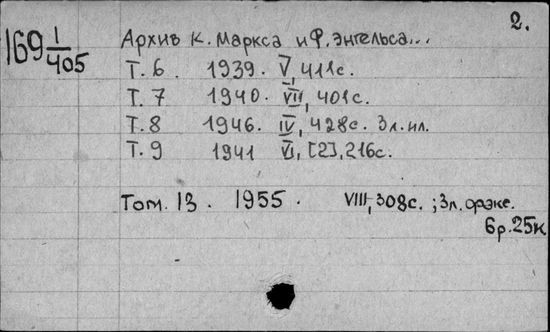 2.
169 1/405
Архив К. Маркса и Ф. Энгельса...
Т. 6 1939. V, 411с.
Т. 7 1940. VII, 401с.
Т. 8 1946. IV, 428с. 3л. ил.
Т. 9 1941 VI, [2], 216с.
Том. 13. 1955. VIII, 308с.; 3л. факс.
6р. 25к